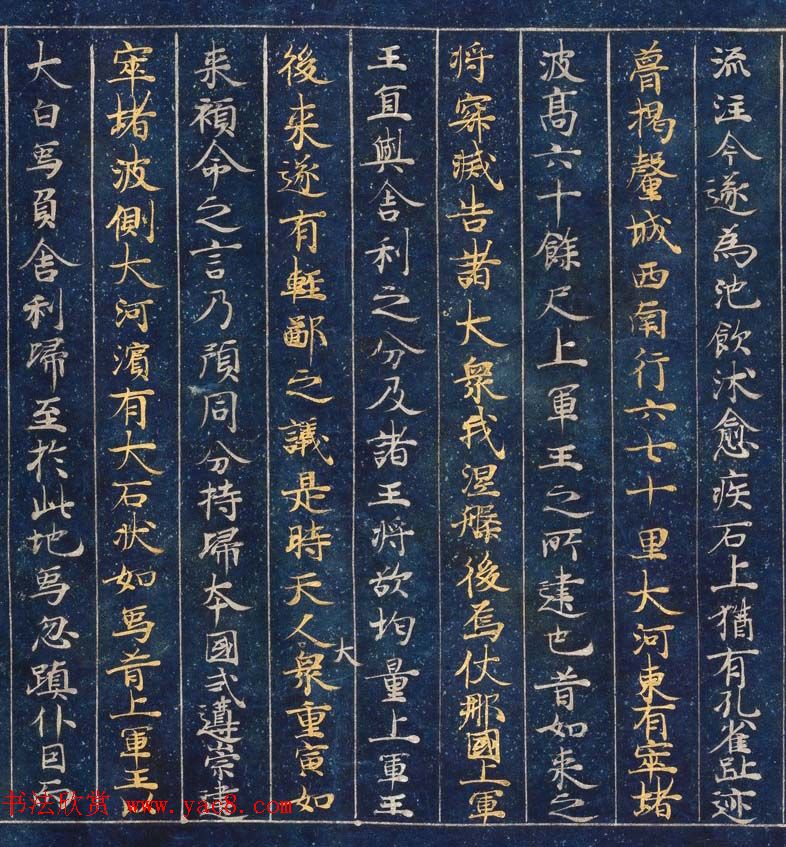 流注今遂為池飲沐愈疾石上猶有孔雀趾迹
瞢揭釐城西南行六七十里大河東有窣堵
波髙六十餘尺上軍王之所建也昔如来之
将寂滅告諸大衆我涅槃後烏仗那國上軍
王宜與舍利之分及諸王将欲均量上軍王
後来遂有輕鄙之議是時天人大衆重宣如
来顧命之言乃預同分持歸本國式遵崇建
窣堵波側大河濱有大石狀如象昔上軍王
大白象負舍利歸至於此地象忽躓仆因
书法欣赏 www.yac8.com